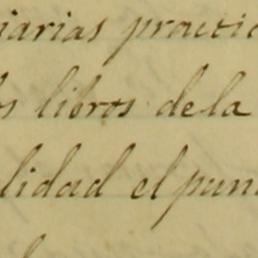 iarias practic
s libros de la
lidad el pun